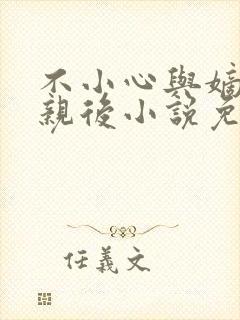 不小心與嫡
親後小説免
任義文